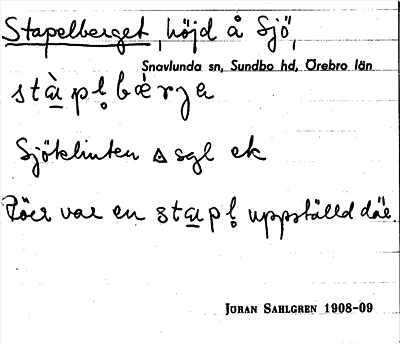 Stapelberget, höjd å Sjö,
Snavlunda sn, Sundbo hd, Örebro län
stàpl̥bærja
Sjöklinten △ sgl ek
var en stapl̥ uppställd där.
JÖRAN SAHLGREN 1908-09